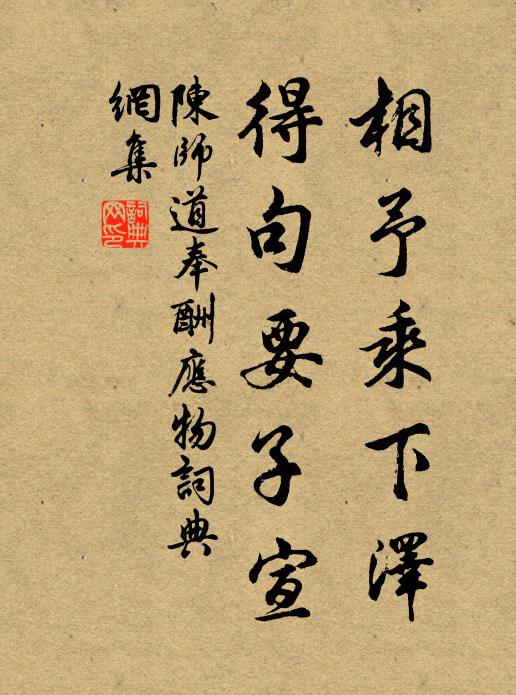 相予乘下澤
得句要子宣
陳師道奉酬應物詞典
網集
詞典網印